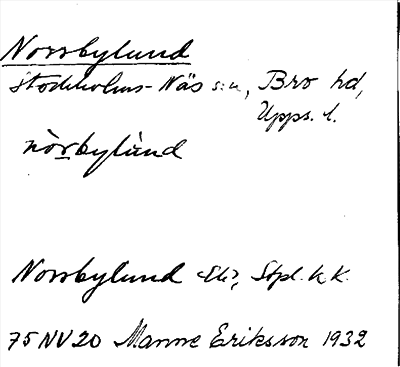 Norrbylund
Stockholms-Näs sn, Bro hd,
Upps. l.
nòrbylùnd
Norrbylund Stpl. h.k.
75 NV 20 Manne Eriksson 1932